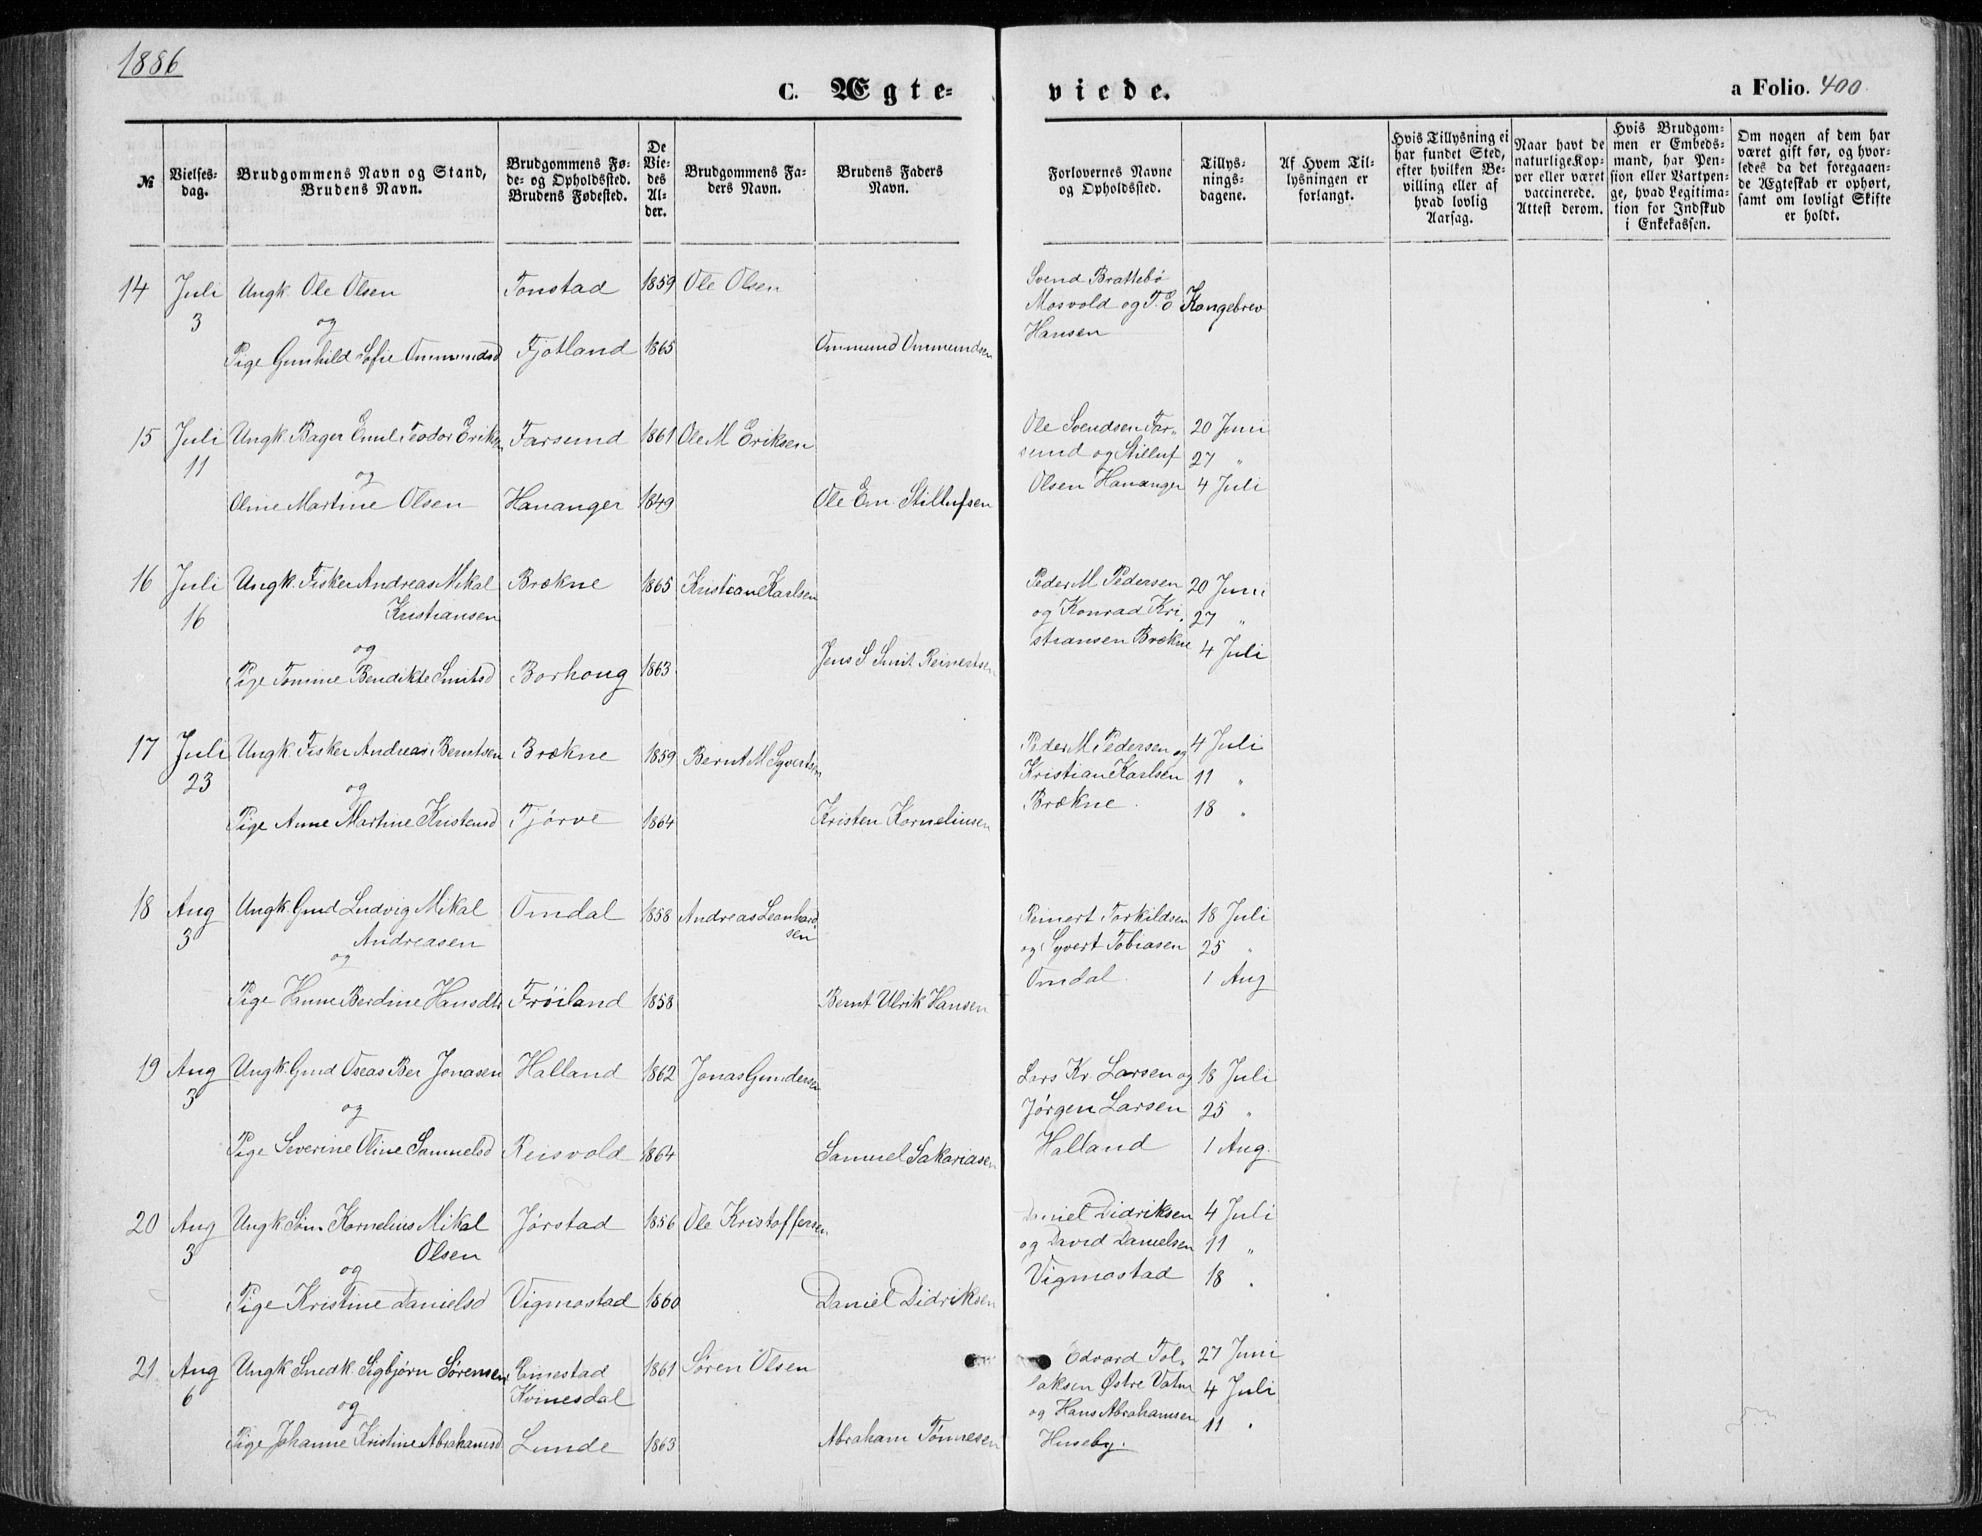 1886
C. Ægte- viede.
a Folio. 400.
№
Vielses-
dag.
Brudgommens Navn og Stand,
Brudens Navn.
Brudgommens Fø-
de- og Opholdssted.
Brudens Fødested.
De
Vie-
des
Al-
der.
Brudgommens Fa-
ders Navn.
Brudens Faders
Navn.
Forlovernes Navne
og Opholdssted.
Tillys-
nings-
dagene.
Af Hvem Til-
lysningen er
forlangt.
Hvis Tillysning ei
har fundet Sted,
efter hvilken Be-
villing eller af
hvad lovlig
Aarsag.
Naar havt de
naturlige Kop-
per eller været
vaccinerede.
Attest derom.
Hvis Brudgom-
men er Embeds-
mand, har Pen-
sion eller Vartpen-
ge, hvad Legitima-
tion for Indskud
i Enkekassen.
Om nogen af dem har
været gift før, og hvor-
ledes da det foregaaen-
de Ægteskab er ophørt,
samt om lovligt Skifte
er holdt.
14 Juli 3 Ungk. Ole Olsen Tonstad 1859 Ole Olsen
og
Pige Gunhild Sofie Ommundsd Fjotland 1865 Ommund Ommundsen
Svend Brattebø
Mosvold og T. E. Kongebrev
Hansen
15 Juli 11 Ungk. Bager Emil Teodor Eriksen Farsund 1861 Ole M Eriksen
og
Oline Martine Olsen Hananger 1849 Ole Em. Stillufsen
Ole Svendsen Far- 20 Juni
sund og Stilluf 27 "
Olsen Hananger 4 Juli
16 Juli 16 Ungk. Fisker Andreas Mikal Brækne 1865 Kristian Karlsen
Kristiansen
og
Pige Tomine Bendikte Smitsd Borhong 1863 Jens S Smit Reinertsen
Peder M Pedersen 20 Juni
og Konrad Kri- 27 "
stiansen Brækne 4 Juli
17 Juli 23 Ungk. Fisker Andreas Berntsen Brækne 1859 Bernt M Syvertsen
og
Pige Anne Martine Kristensd Tjørve 1864 Kristen Korneliusen
Peder M Pedersen og 4 Juli
Kristian Karlsen 11 "
Brækne. 18 "
18 Aug 3 Ungk. Gmd Ludvig Mikal Omdal 1858 Andreas Leonhard-
Andreasen sen
og
Pige Hanne Berdine Hansdtr Frøiland 1858 Bernt Ulrik Hansen
Reinert Torkildsen 18 Juli
og Syvert Tobiasen 25 "
Omdal. 1 Aug
19 Aug 3 Ungk. Gmd Oseas Ber Jonasen Halland 1862 Jonas Gundersen
og
Pige Severine Oline Samuelsd Reisvold 1864 Samuel Sakariasen
Lars Kr. Larsen og 18 Juli
Jørgen Larsen 25 "
Halland 1 Aug.
20 Aug 3 Ungk. Søm. Kornelius Mikal Jørstad 1856 Ole Kristoffersen
Olsen
og
Pige Kristine Danielsd Vigmostad 1860 Daniel Didriksen
Daniel Didriksen 4 Juli
og David Danielsen 11 "
Vigmostad 18 "
21 Aug 6 Ungk Snedk. Sigbjørn Sørensen Rimestad 1861 Søren Olsen
Kvinesdal
og
Pige Johanne Kristine Abrahamsd Lunde 1863 Abraham Tønnesen
Edvard Tol- 27 Juni
laksen Østre Vatne 4 Juli
og Hans Abrahamsen 11 "
Huseby.